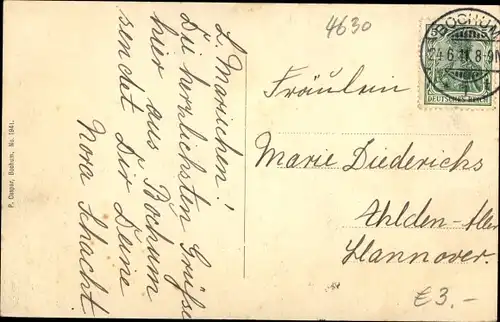 4630
BOCHUM
24.6.11. 8-9N
DEUTSCHES REICH
L. Mariechen!
Die herzlichsten Grüße
hier aus Bochum
sendet Dir Deine
Nora Schacht.
Fräulein
Marie Diederichs
Ahlden-Aller
Hannover.
€ 3.-
P. Caspar, Bochum, No. 1941.